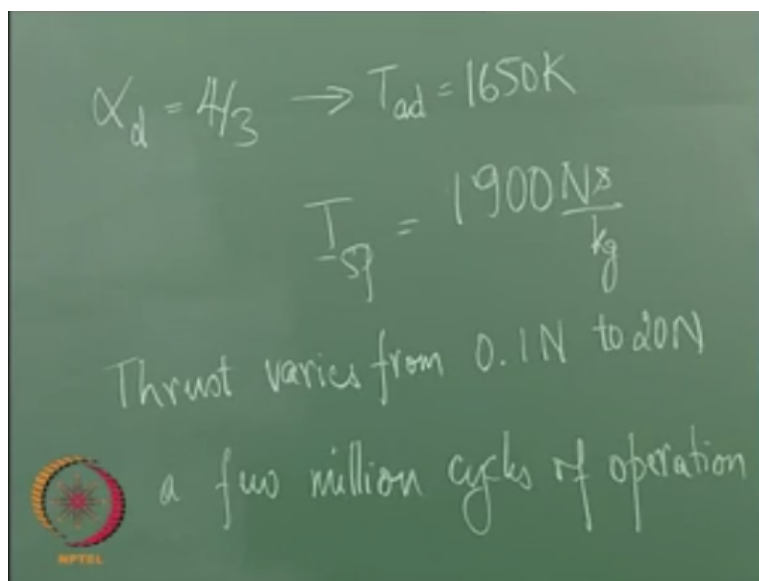 α_d = 4/3 → T_ad = 1650K
I_sp = 1900 Ns/kg
Thrust varies from 0.1N to 20N
a few million cycles of operation
NPTEL